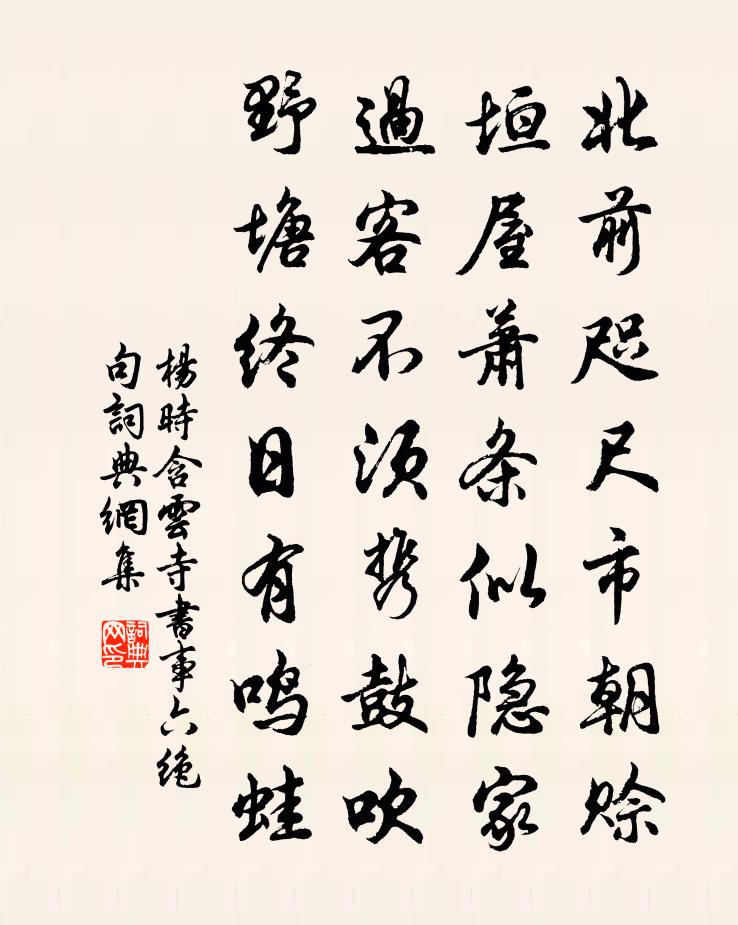 北前咫尺市朝赊
垣屋蕭条似隐家
過客不须携鼓吹
野塘终日有鸣蛙
楊時含雲寺書事六絶
句詞典網集
詞典网印